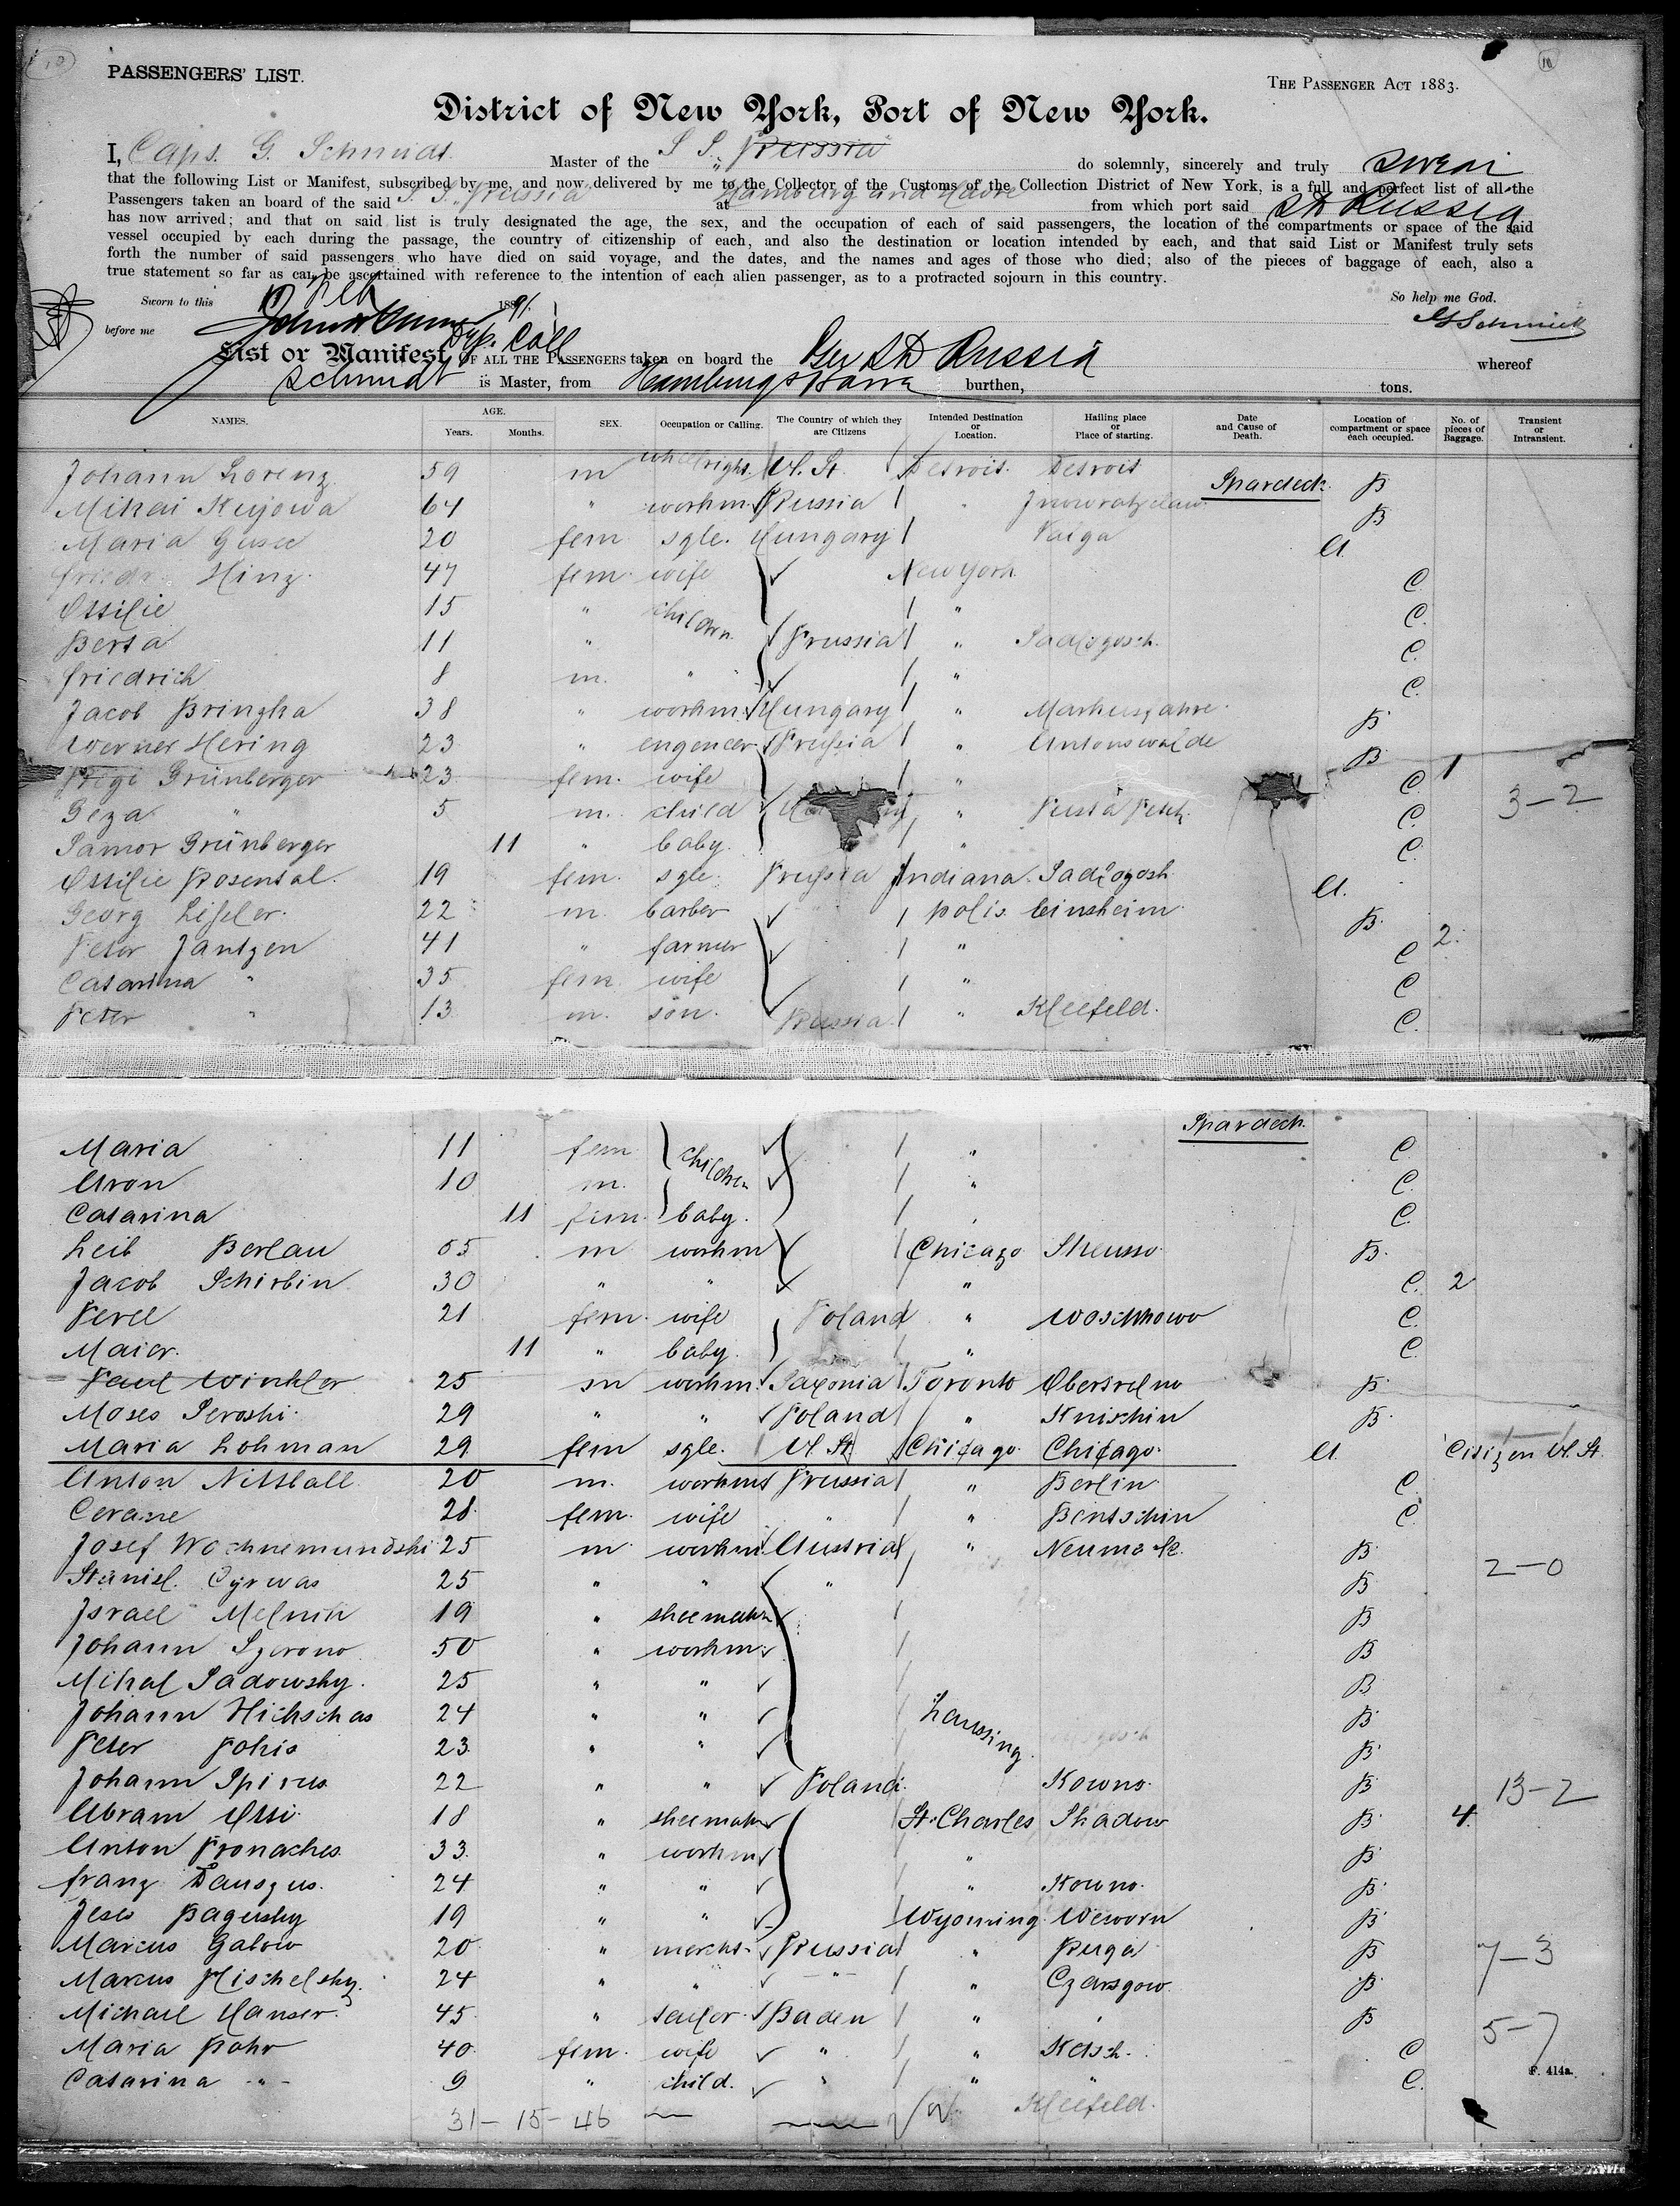 10
10
PASSENGERS' LIST.
THE PASSENGER ACT 1883.
District of New York, Port of New York.
I, Capt. G. Schmidt Master of the S. S. "Russia" do solemnly, sincerely and truly swear
that the following List or Manifest, subscribed by me, and now delivered by me to the Collector of the Customs of the Collection District of New York, is a full and perfect list of all the
Passengers taken an board of the said S. S. Russia at Hamburg and Havre from which port said SS Russia
has now arrived; and that on said list is truly designated the age, the sex, and the occupation of each of said passengers, the location of the compartments or space of the said
vessel occupied by each during the passage, the country of citizenship of each, and also the destination or location intended by each, and that said List or Manifest truly sets
forth the number of said passengers who have died on said voyage, and the dates, and the names and ages of those who died; also of the pieces of baggage of each, also a
true statement so far as can be ascertained with reference to the intention of each alien passenger, as to a protracted sojourn in this country.
Sworn to this Feb 1891.
So help me God.
before me
Dep. Coll
G Schmidt
List or Manifest OF ALL THE PASSENGERS taken on board the Ger SS Russia whereof
Schmidt is Master, from Hamburg & Havre burthen, tons.
NAMES. AGE. Years. Months. SEX. Occupation or Calling. The Country of which they are Citizens Intended Destination or Location. Hailing place or Place of starting. Date and Cause of Death. Location of compartment or space each occupied. No. of pieces of Baggage. Transient or Intransient.
Johann Lorenz 59 m wheelright U. St. Detroit Detroit Spardeck B
Mihai Kujowa 64 " workm. Russia " Inowratzlaw B
Maria 20 fem sgle. Hungary A.
Hinz 47 fem. wife New York C
Ottilie 15 " children " C.
Berta 11 " Prussia " C.
Friedrich 8 m. " " C.
Jacob Bringka 38 " workm. Hungary " B
Werner Hering 23 " engeneer Prussia " Antonswalde B
Grünberger 23 fem. wife " C 1
Geza " 5 m. child " C. 3-2
Samor Grünberger 11 " baby. " C.
Ottilie Rosental. 19 fem. sgle. Prussia Indiana A.
Georg 22 m. barber polis B. 2.
Peter Jantzen 41 " farmer " C
Catarina " 35 fem. wife " C
Peter " 13 m. son. Russia " Kleefeld. C.
Spardeck
Maria 11 fem children " C
Aron 10 m. " C.
Catarina 11 fem. baby. C.
Leib Berlau m workm Chicago B.
Jacob Schirbin 30 " " " C. 2
Perel 21 fem. wife Poland " C
Maier. 11 " baby. " C
Paul Winkler 25 m workm. Saxonia Toronto B.
Moses Seroski 29 " " Poland " Knischin B.
Maria Lohman 29 fem sgle. U. St. Chicago Chicago A. Citizen U. St.
Anton Nitsball 20 m. workm Prussia " Berlin C.
28 fem. wife " " Bentschin C
Josef Wochnemundski 25 m. workm. Austria " B
Stanisl. Cyrwas 25 " " " B 2-0
Israel Melnik 19 " B
Johann 50 " workm. B
Mihal Sadowsky. 25 " " B
Johann Hichschas 24 " " Lanssing. B
Peter Pokis 23 " " B
Johann Spirus 22 " " Poland. Kowno. B 13-2
Abram 18 " St. Charles Shadow B 4.
Anton Pronaches 33 " workm " B
Franz Dauszus. 24 " " " Kowno. B
Jeses Bagersky 19 " " Wyoming B
Marcus Galow 20 " mercht. Russia " B 7-3
Marcus Mischelsky 24 " " " " B
Michael Hanser. 45 " Baden " " B 5-7
Maria Rohr 40 fem. wife " " Ketsch. C
Catarina " 9 " child. " " " C. F. 414a.
31-15-46 Kleefeld.